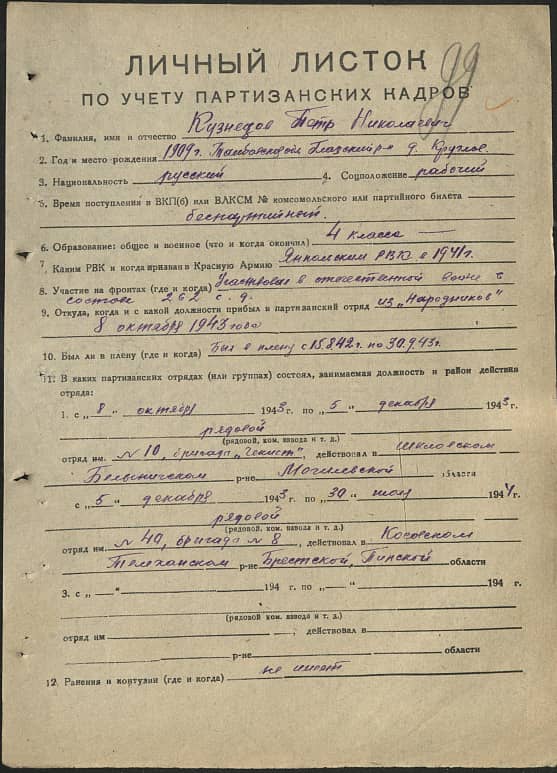 99
ЛИЧНЫЙ ЛИСТОК
ПО УЧЕТУ ПАРТИЗАНСКИХ КАДРОВ
1. Фамилия, имя и отчество Кузнецов Петр Николаевич
2. Год и место рождения 1909 г. Тамбовской р-н д. Круглое
3. Национальность русский 4. Соцположение рабочий
5. Время поступления в ВКП(б) или ВЛКСМ № комсомольского или партийного билета
беспартийный.
6. Образование: общее и военное (что и когда окончил) 4 класса
7. Каким РВК и когда призван в Красную Армию Ямпольским РВК в 1941 г.
8. Участие на фронтах (где и когда) Участвовал в отечественной войне в
составе 262 с. д.
9. Откуда, когда и с какой должности прибыл в партизанский отряд из „Народников"
8 октября 1943 года
10. Был ли в плену (где и когда) Был в плену с 15.8.42 г. по 30.9.43 г.
11. В каких партизанских отрядах (или группах) состоял, занимаемая должность и район действия
отряда:
1. с „8" октября 1943 г. по „5" декабря 1943 г.
рядовой
(рядовой, ком. взвода и т. д.)
отряд им. № 10, бригада „Чекист", действовал в Шкловском
Белыничском р-не Могилевской области
с „5" декабря 1943 г. по „30" 1944 г.
рядовой
(рядовой, ком. взвода и т. д.)
отряд им. бригада № 8, действовал в Косовском
Телеханском р-не Брестской, Пинской области
3. с „ — " 194 г. по „ — " 194 г.
(рядовой, ком. взвода и т. д.)
отряд им , действовал в
р-не области
12. Ранения и контузии (где и когда) не имеет